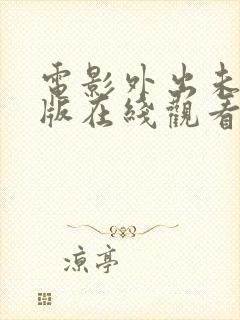 電影外出未
版在綫觀看
涼亭